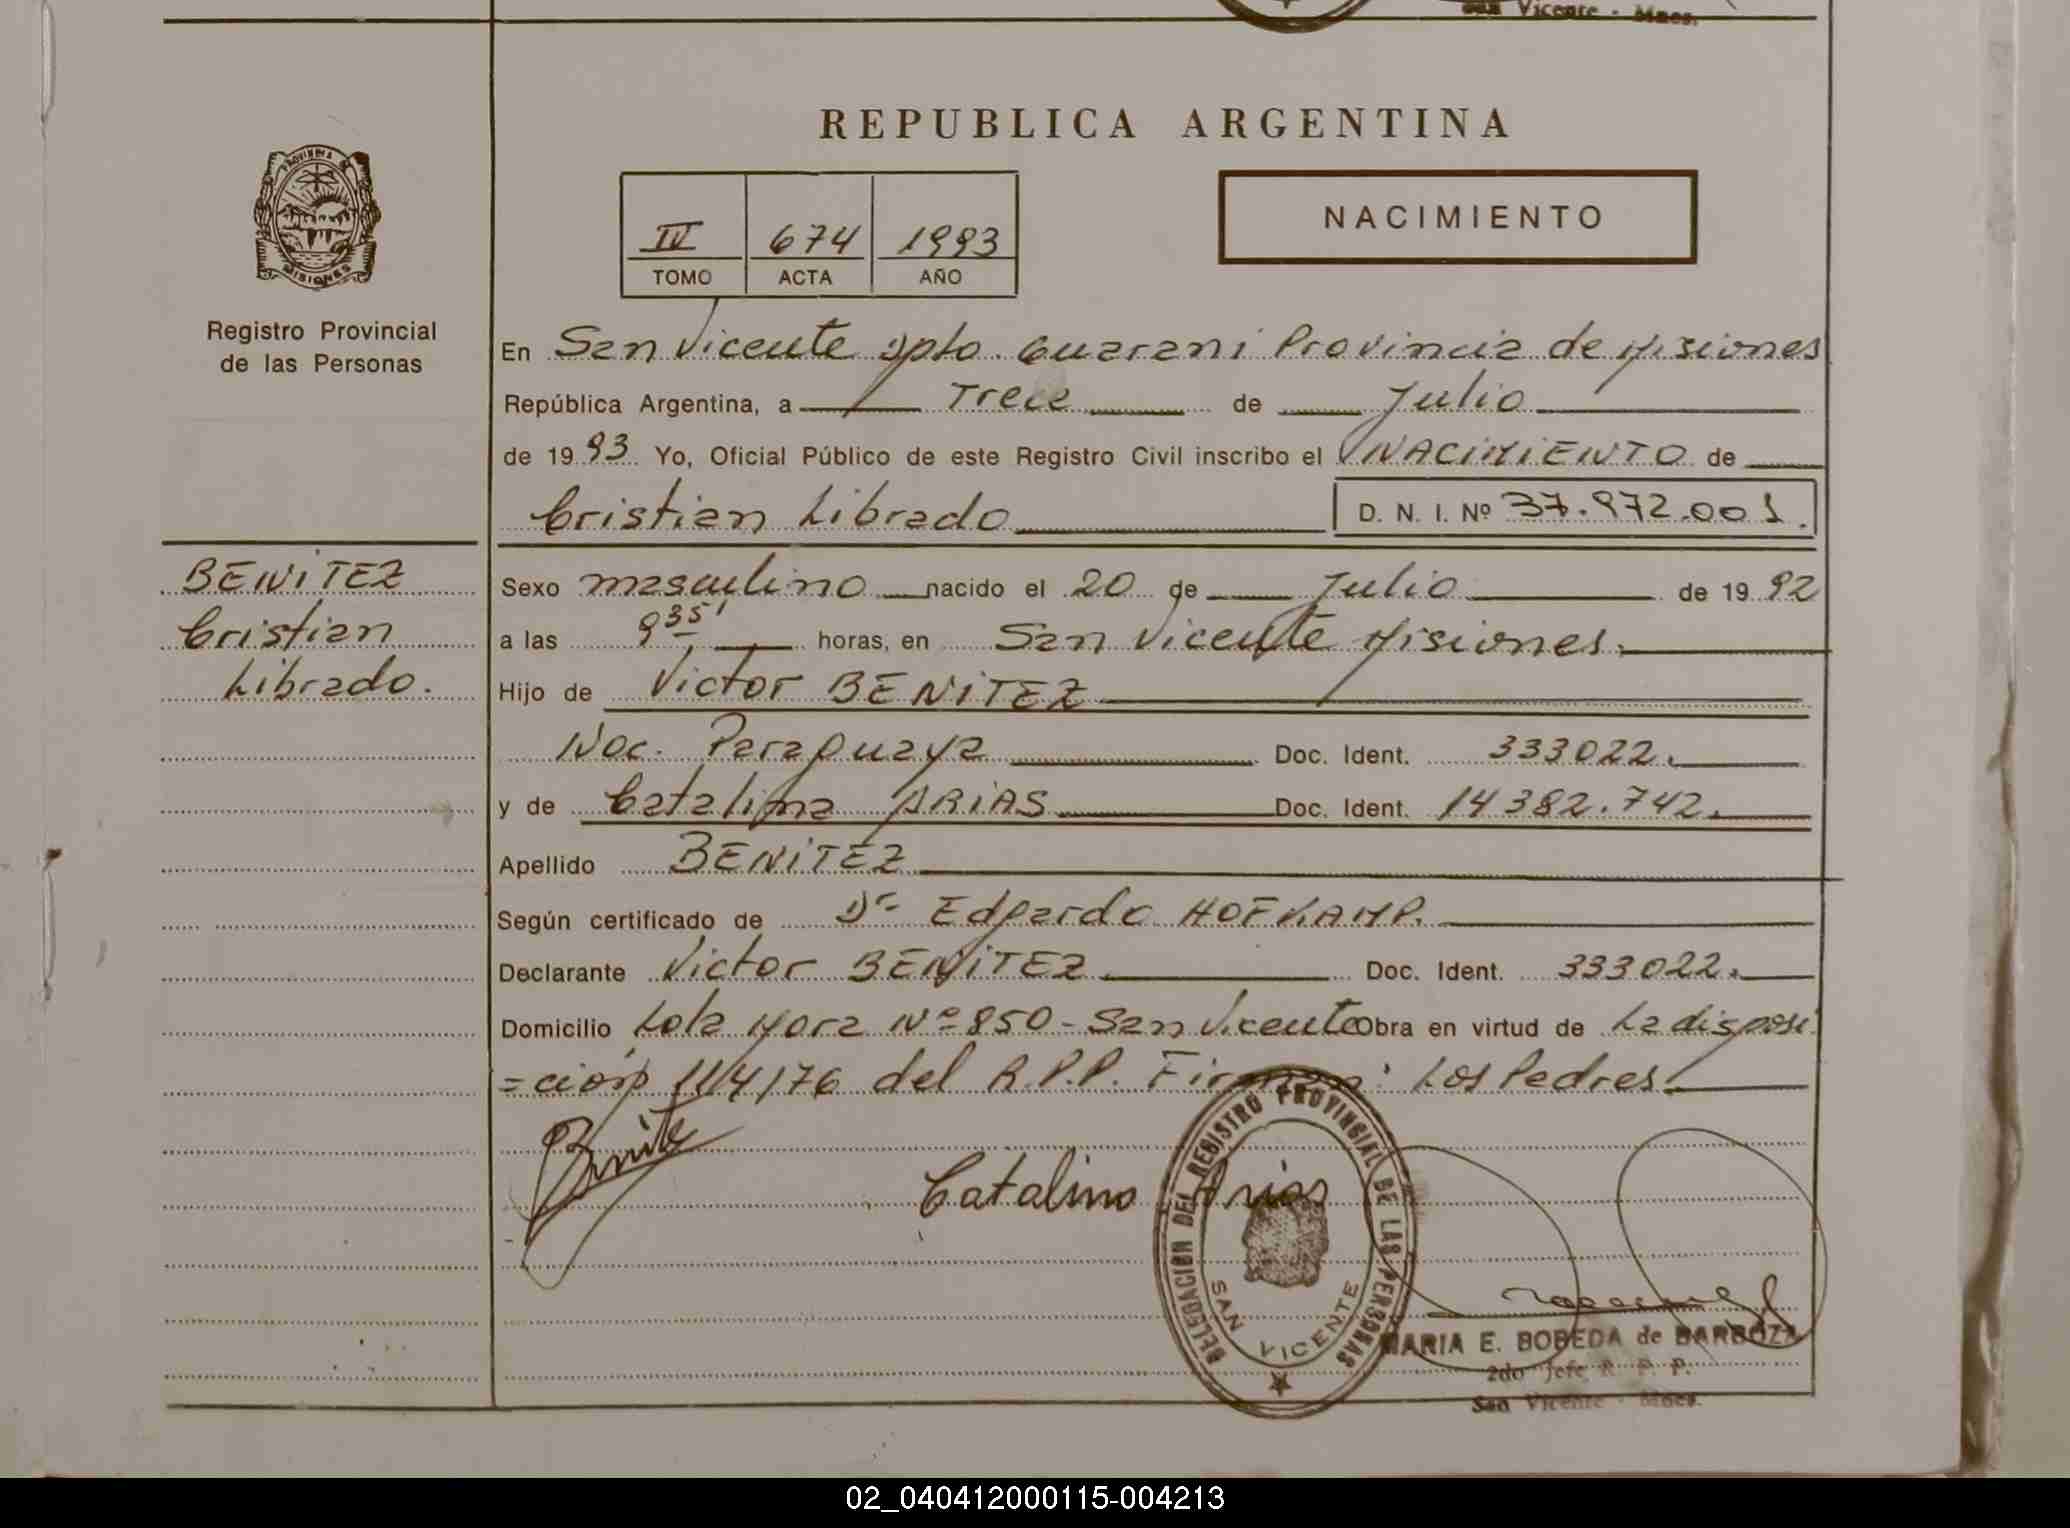 San Vicente - Mnes.
REPUBLICA ARGENTINA
PROVINCIA DE
MISIONES
Registro Provincial
de las Personas
IV 674 1993
TOMO ACTA AÑO
NACIMIENTO
En San Vicente Dpto. Guarani Provincia de Misiones
República Argentina, a Trece de Julio
de 1993 Yo, Oficial Público de este Registro Civil inscribo el NACIMIENTO de
Cristian Librado D. N. I. Nº 37.972.001.
BENITEZ
Cristian
Librado.
Sexo masculino nacido el 20 de Julio de 1992
a las 9 35' horas, en San Vicente Misiones.
Hijo de Victor BENITEZ
Nac. Paraguaya Doc. Ident. 333022.
y de Catalina ARIAS Doc. Ident. 14382.742.
Apellido BENITEZ
Según certificado de Dr Edgardo HOFKAMP.
Declarante Victor BENITEZ Doc. Ident. 333022.
Domicilio Lola Mora Nº 850 - San Vicente Obra en virtud de La disposi
=cion 114/76 del R.P.P. Firman: Los Padres.
Benitez
Catalina Arias
DELEGACION DEL REGISTRO PROVINCIAL DE LAS PERSONAS
SAN VICENTE
MARIA E. BOBEDA de BARBOZA
2do Jefe R. P. P.
San Vicente - Mnes.
02_040412000115-004213